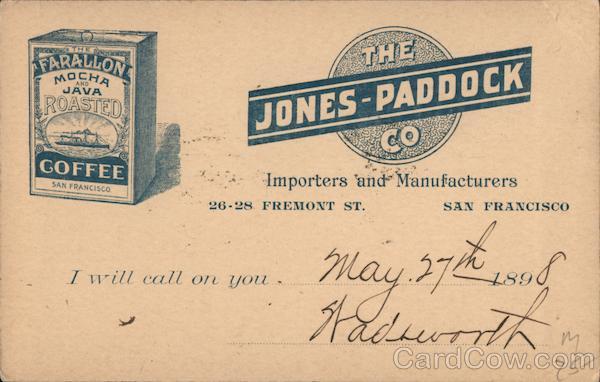 THE
FARALLON
MOCHA
AND
JAVA
ROASTED
COFFEE
SAN FRANCISCO
THE
JONES-PADDOCK
CO
Importers and Manufacturers
26-28 FREMONT ST. SAN FRANCISCO
I will call on you May. 27th 1898
Wadsworth
CardCow.com